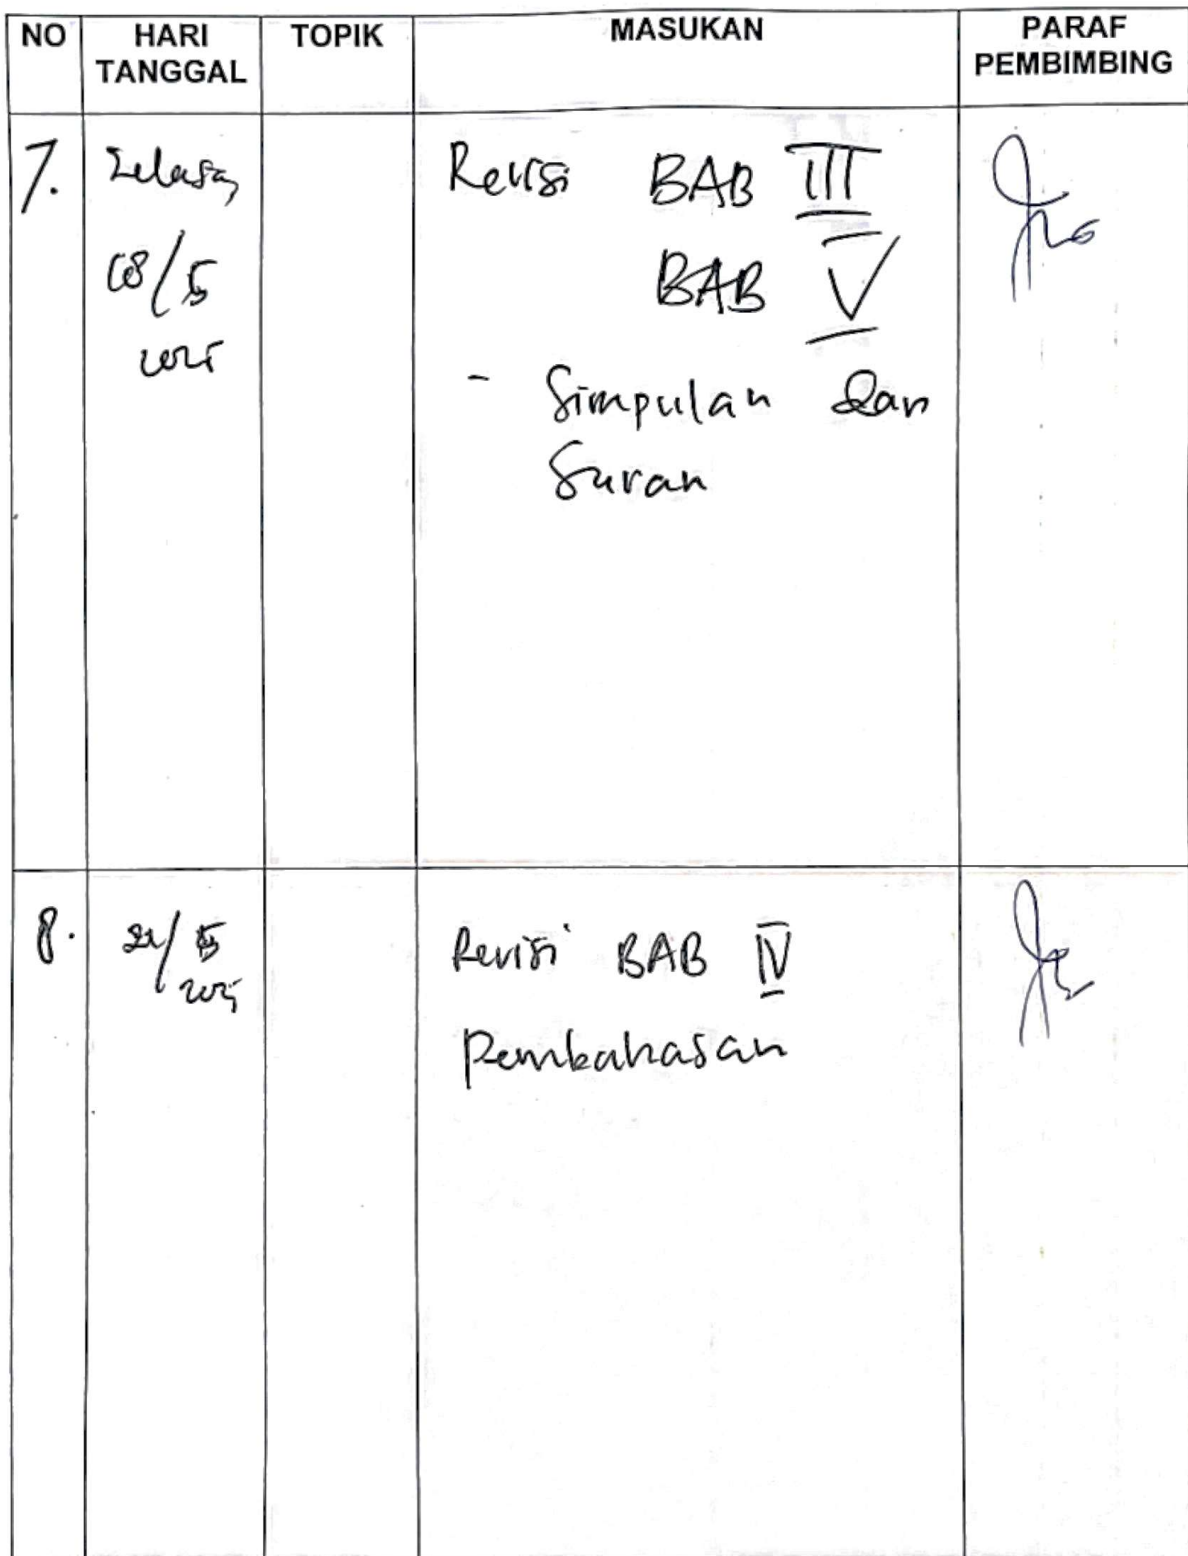 NO HARI TANGGAL TOPIK MASUKAN PARAF PEMBIMBING
7. Selasa, Revisi BAB III
BAB V
- Simpulan dan
Saran
8. Revisi BAB IV
Pembahasan